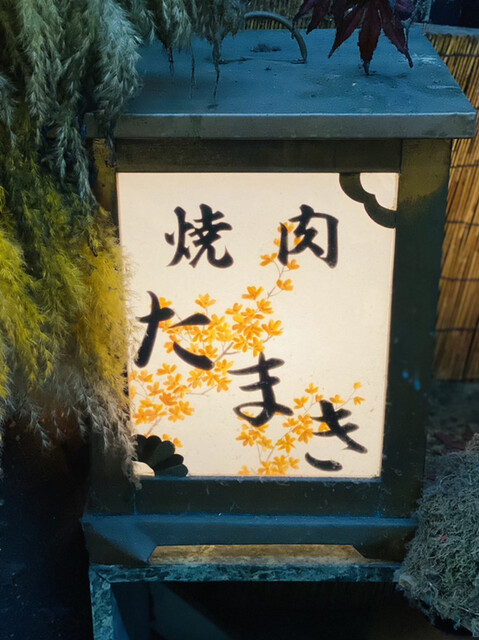 焼肉
たまき